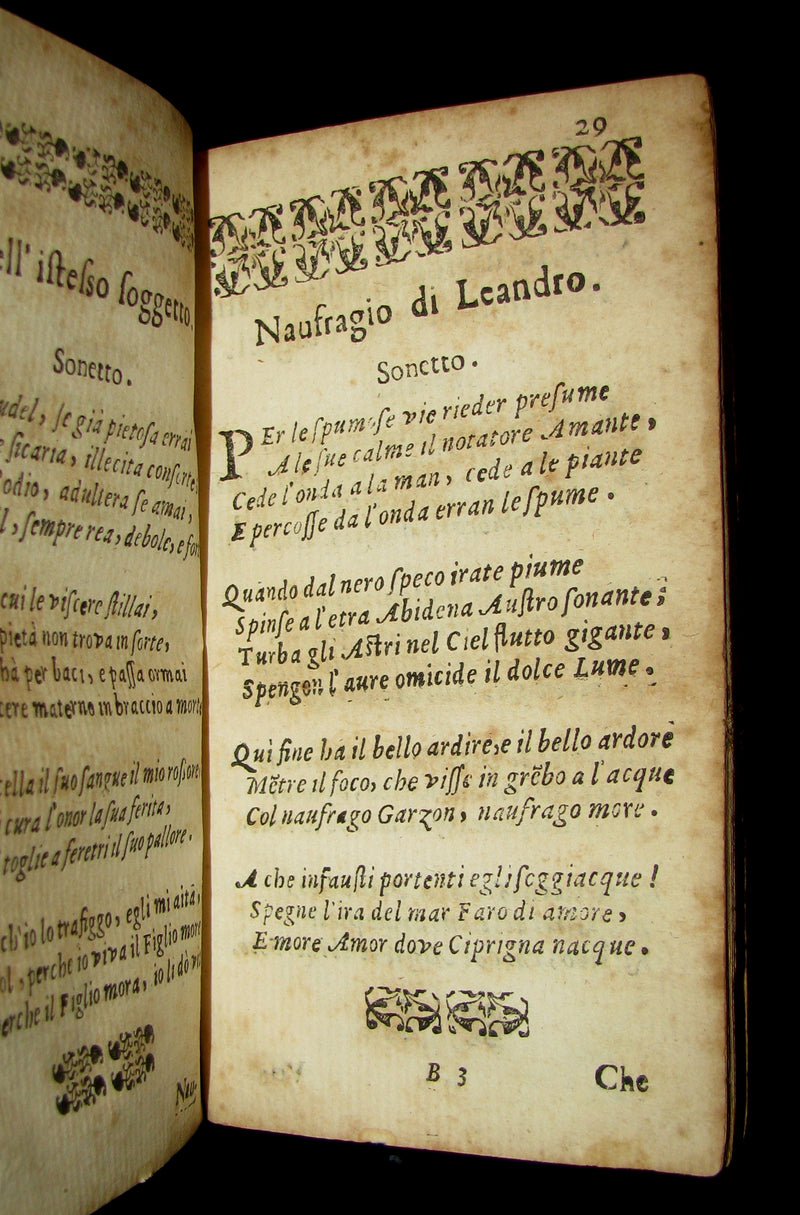 ell' iſteſso ſoggetto,
Sonetto.
udel, ſe già pietoſa errai
ficaria, illecita
odio, adultera ſe amai,
ſempre rea, debole, e
cui le viſcere ſtillai,
pietà non trova in ſorte,
hà per baci, e paſſa ormai
materno in braccio a
ella il ſuo ſangue il mio roſſore
cura l'onor la ſua ferita,
toglie a feretri il ſuo pallore.
ch'io lo trafiggo, egli mi aita,
perche io viva il Figlio more
erche il Figlio mora, io li dò
Nau-
29
Naufragio di Leandro.
Sonetto.
PEr le ſpumoſe vie rieder preſume
A le ſue calme il notatore Amante,
Cede l'onda a la man, cede a le piante
E percoſſe da l'onda erran le ſpume.
Quando dal nero ſpeco irate piume
Spinſe a l'etra Abidena Auſtro ſonante;
Turba gli Aſtri nel Ciel flutto gigante,
Spengon l'aure omicide il dolce Lume.
Quì fine ha il bello ardire, e il bello ardore
Mẽtre il foco, che viſſe in grẽbo a l'acque
Col naufrago Garzon, naufrago more.
A che infauſti portenti egli ſoggiacque!
Spegne l'ira del mar Faro di amore,
E more Amor dove Ciprigna nacque.
B 3
Che